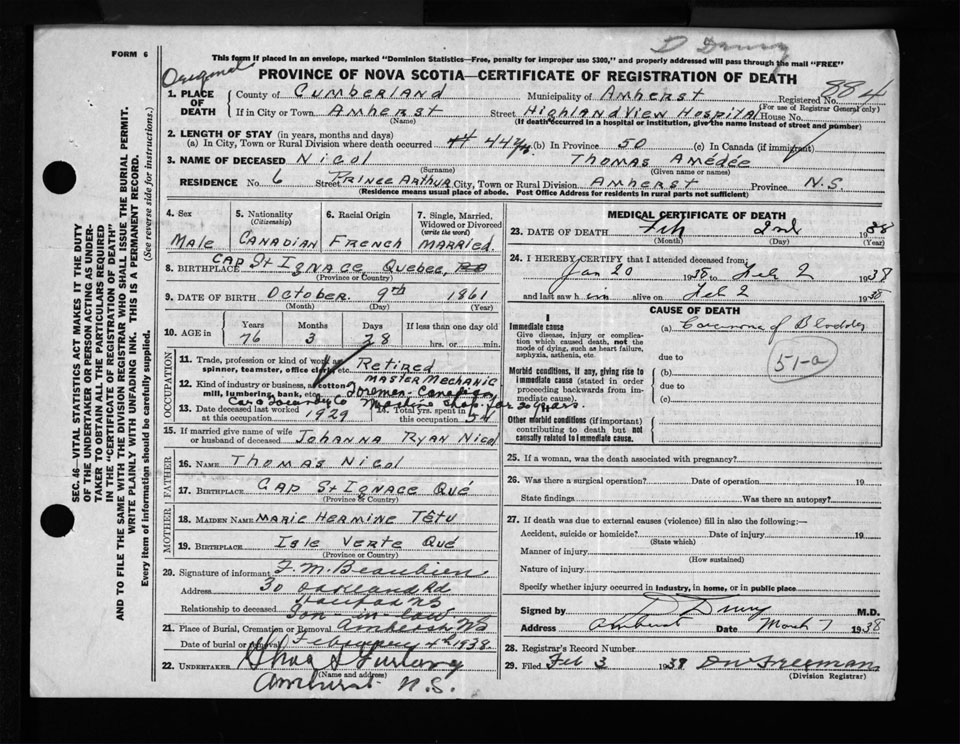 D Drury
FORM 6
This form if placed in an envelope, marked "Dominion Statistics—Free, penalty for improper use $300," and properly addressed will pass through the mail "FREE"
Original
PROVINCE OF NOVA SCOTIA—CERTIFICATE OF REGISTRATION OF DEATH
884
1. PLACE OF DEATH
County of CUMBERLAND Municipality of AMHERST Registered No.
(For use of Registrar General only)
If in City or Town AMHERST Street HIGHLAND VIEW HOSPITAL House No.
(Name) (If death occurred in a hospital or institution, give the name instead of street and number)
2. LENGTH OF STAY (in years, months and days)
(a) In City, Town or Rural Division where death occurred 44 (b) In Province 50 (c) In Canada (if immigrant)
3. NAME OF DECEASED NICOL THOMAS AMÉDÉE
(Surname) (Given name or names)
RESIDENCE No. 6 Street PRINCE ARTHUR City, Town or Rural Division AMHERST Province N.S.
(Residence means usual place of abode. Post Office Address for residents in rural parts not sufficient)
4. Sex 5. Nationality (Citizenship) 6. Racial Origin 7. Single, Married, Widowed or Divorced (write the word)
MALE CANADIAN FRENCH MARRIED.
8. BIRTHPLACE CAP ST IGNACE, QUEBEC,
(Province or Country)
9. DATE OF BIRTH OCTOBER 9TH 1861
(Month) (Day) (Year)
10. AGE in Years Months Days If less than one day old
76 3 28 hrs. or min.
OCCUPATION
11. Trade, profession or kind of work as spinner, teamster, office clerk, etc. RETIRED
MASTER MECHANIC
12. Kind of industry or business, as cotton mill, lumbering, bank, etc. Foreman - Canadian
Car & Foundry Co Machine Shop for 20 years.
13. Date deceased last worked at this occupation 1929 14. Total yrs. spent in this occupation 54
15. If married give name of wife or husband of deceased JOHANNA RYAN NICOL
FATHER
16. NAME THOMAS NICOL
17. BIRTHPLACE CAP ST IGNACE QUÉ
(Province or Country)
MOTHER
18. MAIDEN NAME MARIE HERMINE TÊTU
19. BIRTHPLACE ISLE VERTE QUÉ
(Province or Country)
20. Signature of informant F. M. Beaubien
Address 30 Oakland Rd
Halifax NS
Relationship to deceased Son in law
21. Place of Burial, Cremation or Removal Amherst NS
Date of burial or removal February 1938.
22. UNDERTAKER Furlong
(Name and address)
Amherst N.S.
MEDICAL CERTIFICATE OF DEATH
23. DATE OF DEATH Feb 2nd 1938
(Month) (Day) (Year)
24. I HEREBY CERTIFY that I attended deceased from:
Jan 20 1938 to Feb 2 1938
and last saw him alive on Feb 2 1938
CAUSE OF DEATH
I
Immediate cause (a) Carcinoma of Bladder
Give disease, injury or complication which caused death, not the mode of dying, such as heart failure, asphyxia, asthenia, etc.
due to
51-a
Morbid conditions, if any, giving rise to immediate cause (stated in order proceeding backwards from immediate cause).
(b)
due to
(c)
II
Other morbid conditions (if important) contributing to death but not causally related to immediate cause.
25. If a woman, was the death associated with pregnancy?
26. Was there a surgical operation? Date of operation 19
State findings Was there an autopsy?
27. If death was due to external causes (violence) fill in also the following:—
Accident, suicide or homicide? Date of injury 19
(State which)
Manner of injury
(How sustained)
Nature of injury
Specify whether injury occurred in industry, in home, or in public place
Signed by D Drury M.D.
Address Amherst Date March 7 1938
28. Registrar's Record Number
29. Filed Feb 3 1938 DW Freeman
(Division Registrar)
SEC. 46—VITAL STATISTICS ACT MAKES IT THE DUTY
OF THE UNDERTAKER OR PERSON ACTING AS UNDER-
TAKER TO OBTAIN ALL THE PARTICULARS REQUIRED
IN THE "CERTIFICATE OF REGISTRATION OF DEATH"
AND TO FILE THE SAME WITH THE DIVISION REGISTRAR WHO SHALL ISSUE THE BURIAL PERMIT.
WRITE PLAINLY WITH UNFADING INK. THIS IS A PERMANENT RECORD.
Every item of information should be carefully supplied. (See reverse side for instructions.)